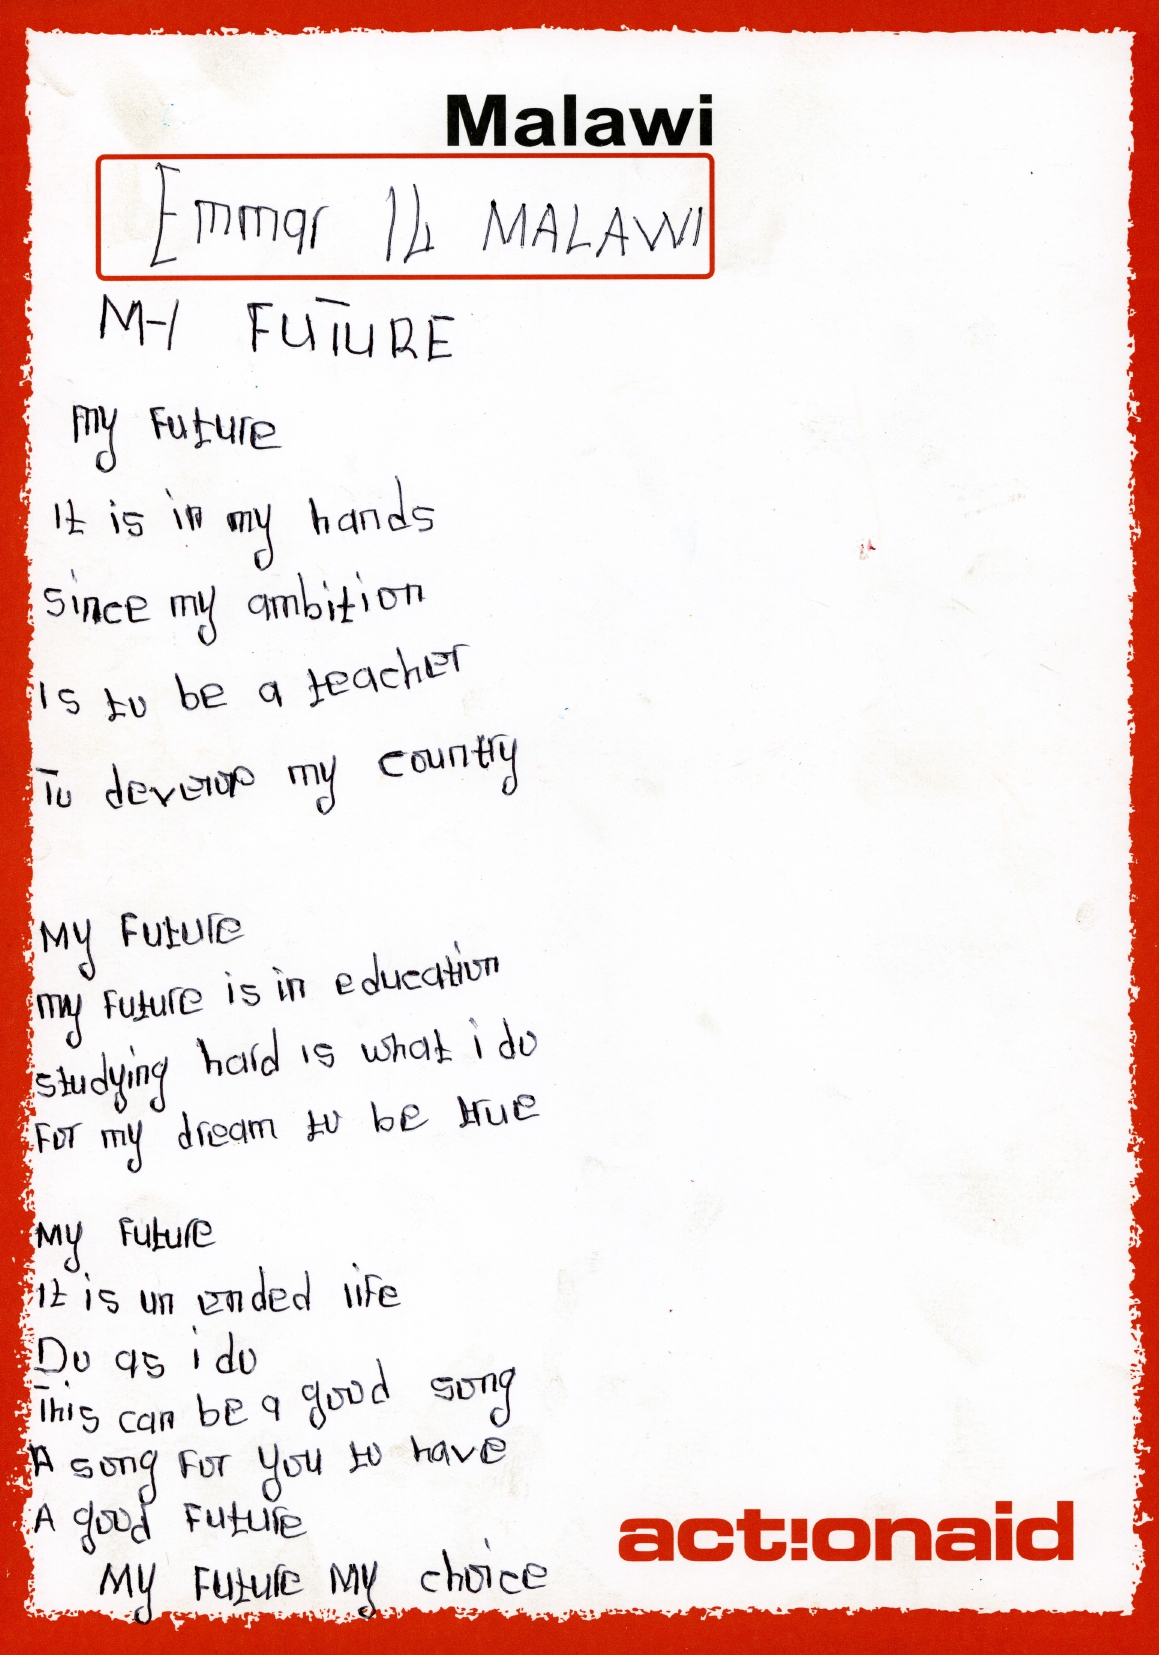 Malawi
Emmar 14 MALAWI
MY FUTURE
My Future
It is in my hands
Since my ambition
Is to be a teacher
To develop my country
My Future
my Future is in education
studying hard is what i do
For my dream to be true
My Future
It is un ended life
Do as i do
This can be a good song
A song For you to have
A good Future
My Future My choice
act!onaid